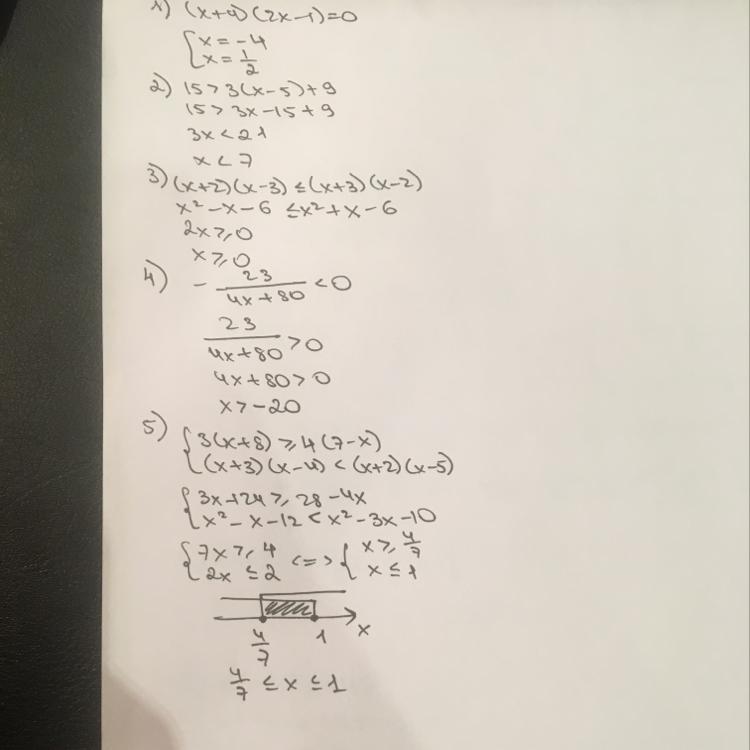 1) (x+4)(2x-1)=0
{x=-4
x=1/2
2) 15>3(x-5)+9
15>3x-15+9
3x<21
x<7
3) (x+2)(x-3)≤(x+3)(x-2)
x²-x-6≤x²+x-6
2x≥0
x≥0
4) -23/(4x+80)<0
23/(4x+80)>0
4x+80>0
x>-20
5) {3(x+8)≥4(7-x)
(x+3)(x-4)<(x+2)(x-5)
{3x+24≥28-4x
x²-x-12<x²-3x-10
{7x≥4 <=> {x≥4/7
2x≤2 x≤1
4/7 1 x
4/7≤x≤1